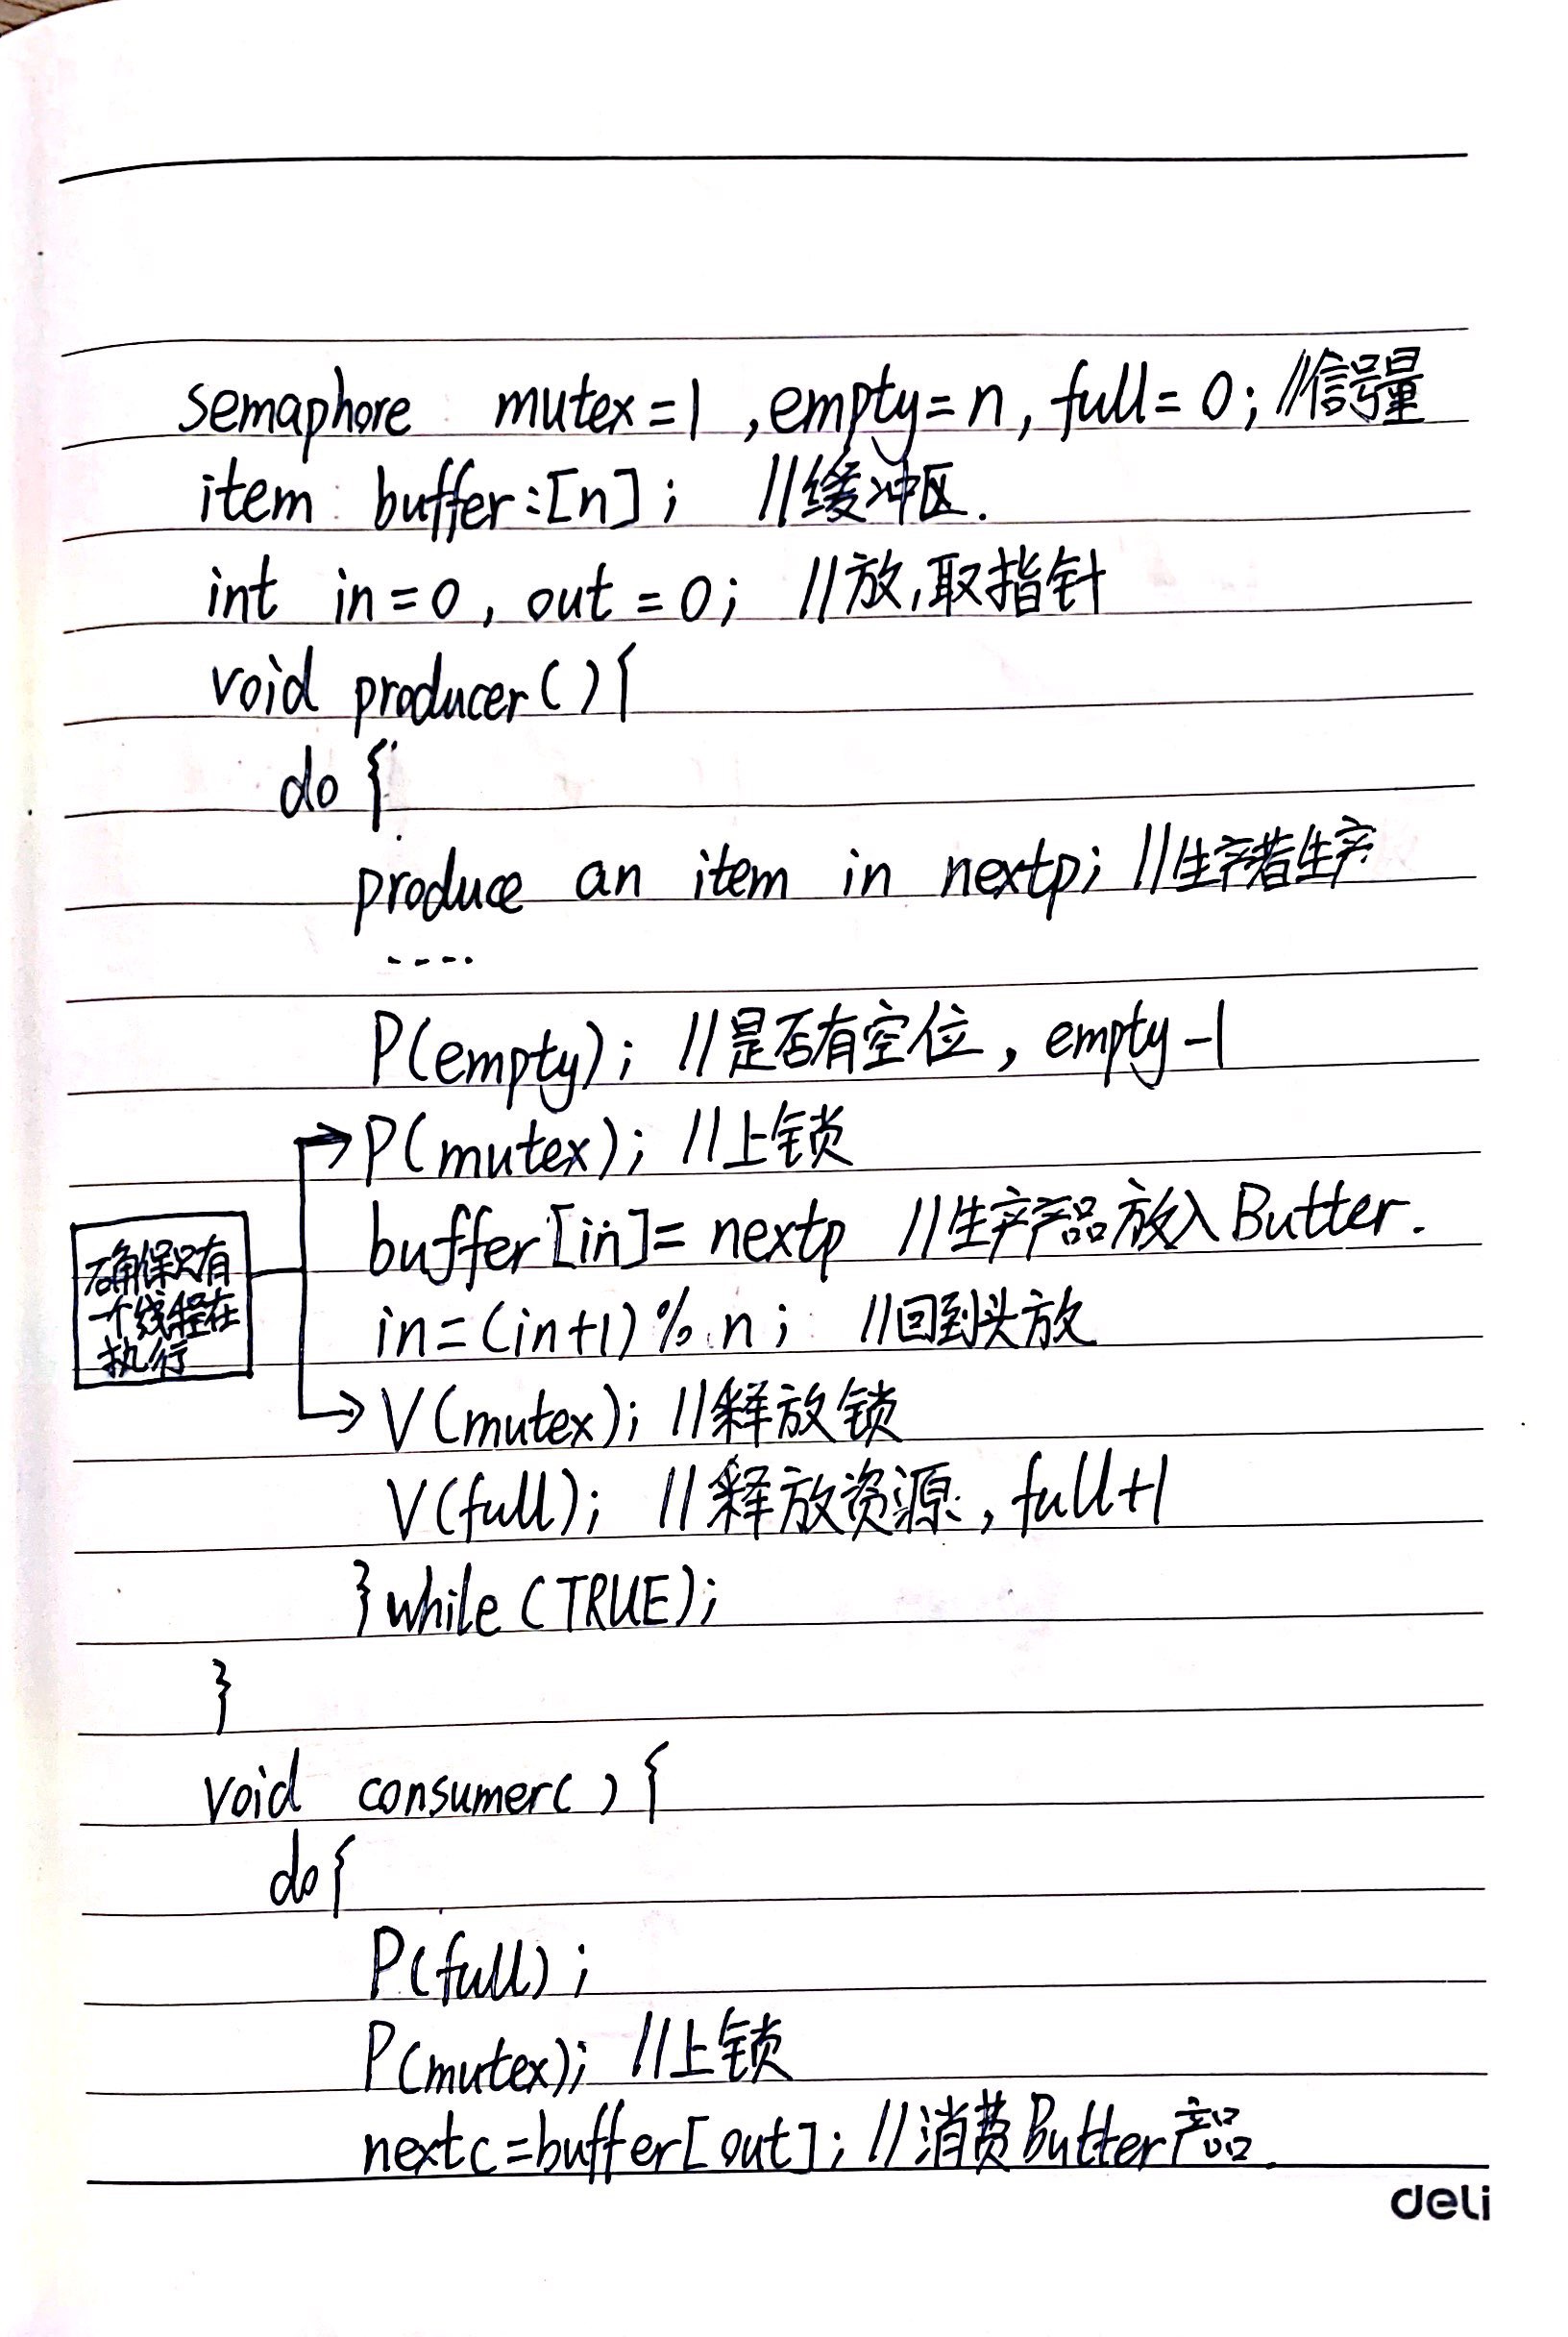 semaphore mutex=1 ,empty=n, full=0; //信号量
item buffer:[n]; //缓冲区.
int in=0, out=0; //放,取指针
void producer(){
do {
produce an item in nextp; //生产者生产
....
P(empty); //是否有空位, empty-1
P(mutex); //上锁
buffer[in]= nextp //生产产品放入Butter.
确保只有
一个线程在
执行
in=(in+1)%n; //回到头放
V(mutex); //释放锁
V(full); //释放资源, full+1
}while(TRUE);
}
void consumer(){
do{
P(full);
P(mutex); //上锁
nextc=buffer[out]; //消费Butter产品.
deli